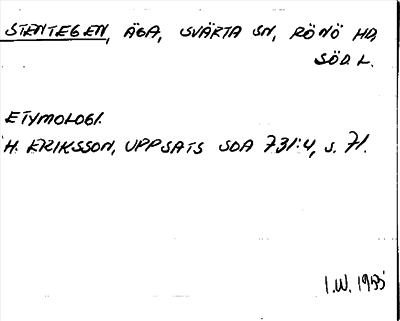 STENTEGEN, ÄGA, SVÄRTA SN, RÖNÖ HD,
SÖD. L.
ETYMOLOGI.
H. ERIKSSON, UPPSATS SOA 731:4, S. 71.
I.W. 1955